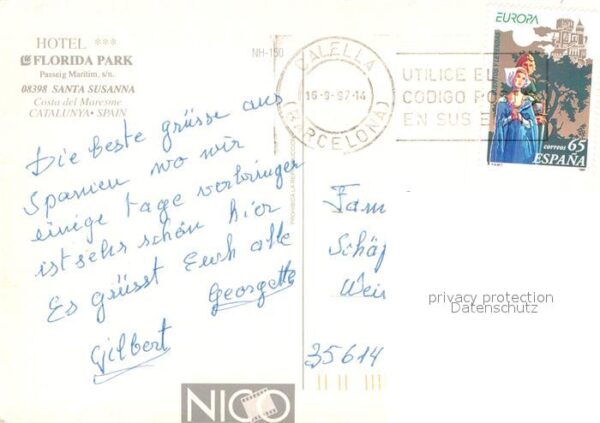 HOTEL ***
FLORIDA PARK
Passeig Maritim, s/n.
08398 SANTA SUSANNA
Costa del Maresme
CATALUNYA • SPAIN
NH-150
CALELLA
16-9-97-14
(BARCELONA)
UTILICE EL
CODIGO PO
EN SUS E
EUROPA
correos 65
ESPAÑA
Die beste grüsse aus
Spanien wo wir
einige tage verbringen
ist sehr schön hier
Es grüsst Euch alle
Georgette
Gilbert
Fam
Schäf
Wei
35614
privacy protection
Datenschutz
NICO